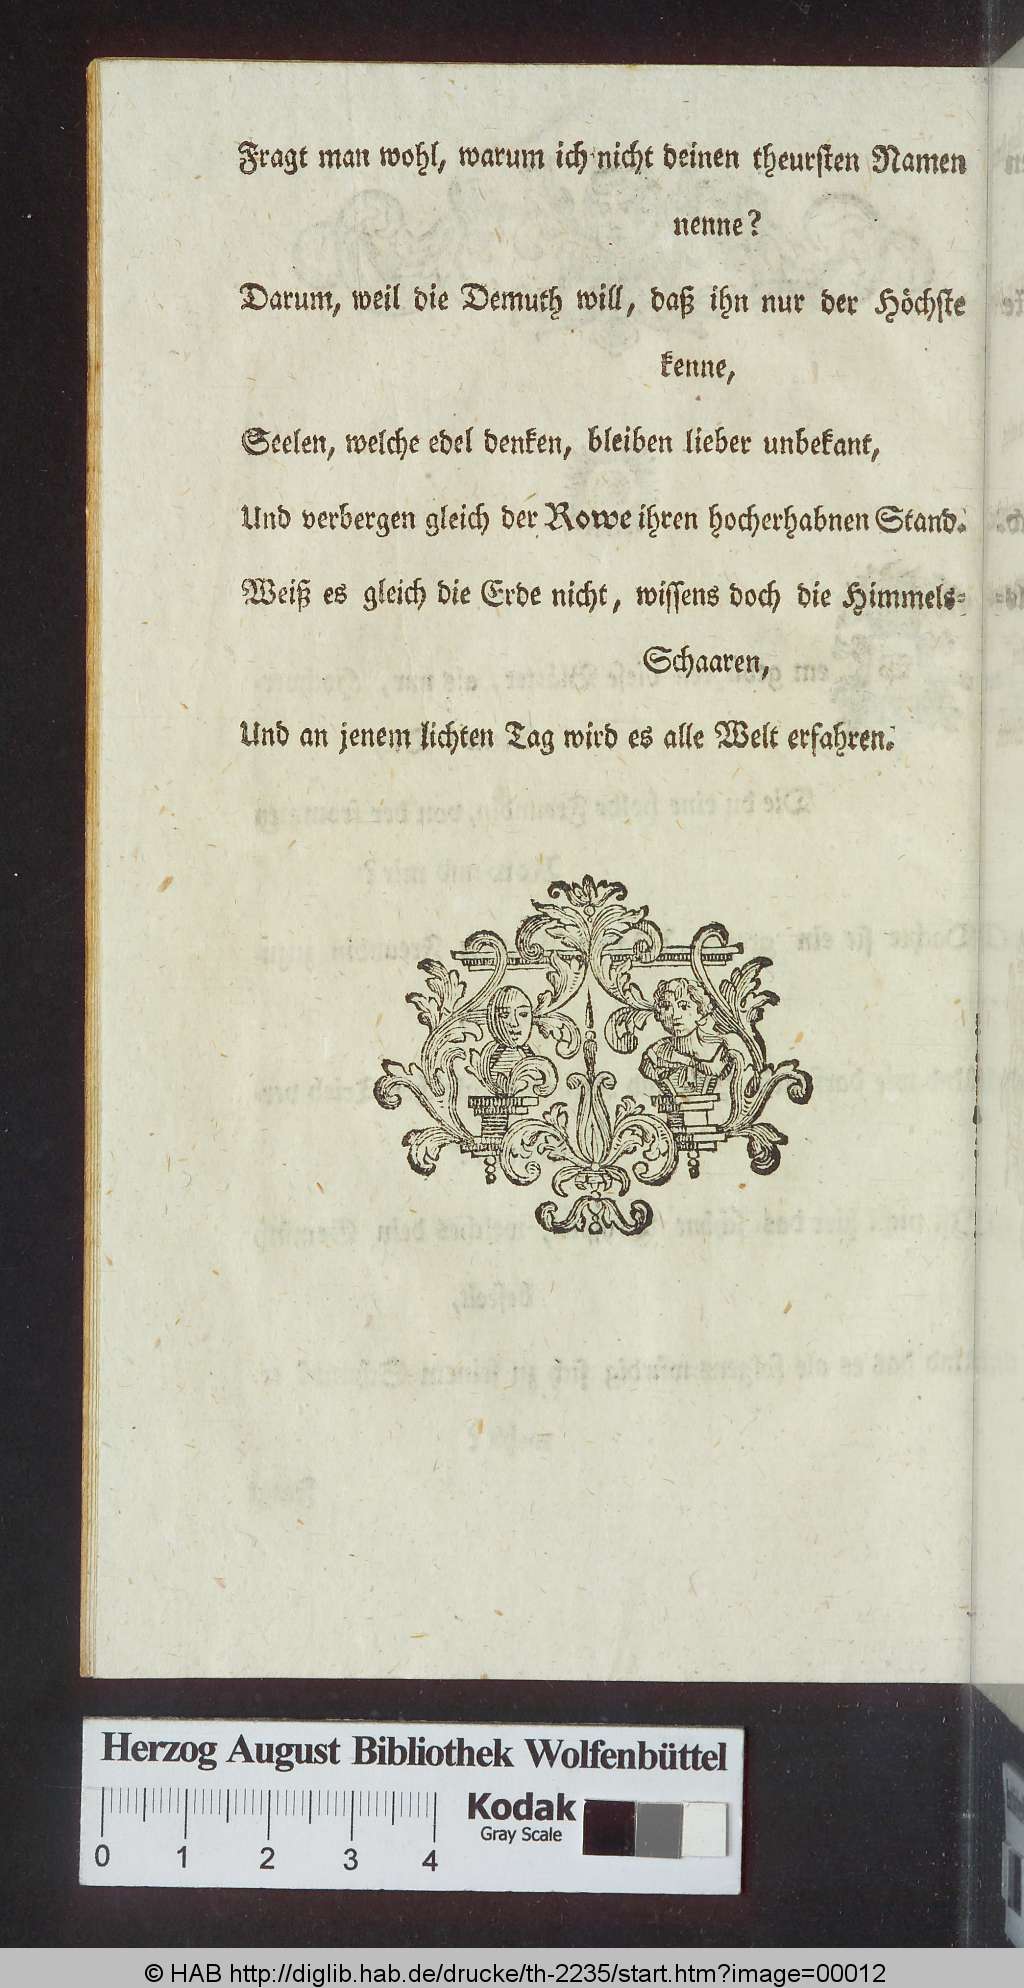 Fragt man wohl, warum ich nicht deinen theursten Namen
nenne?
Darum, weil die Demuth will, daß ihn nur der Höchste
kenne,
Seelen, welche edel denken, bleiben lieber unbekant,
Und verbergen gleich der Rowe ihren hocherhabnen Stand.
Weiß es gleich die Erde nicht, wissens doch die Himmels-
Schaaren,
Und an jenem lichten Tag wird es alle Welt erfahren.
Herzog August Bibliothek Wolfenbüttel
Kodak
Gray Scale
0 1 2 3 4
© HAB http://diglib.hab.de/drucke/th-2235/start.htm?image=00012